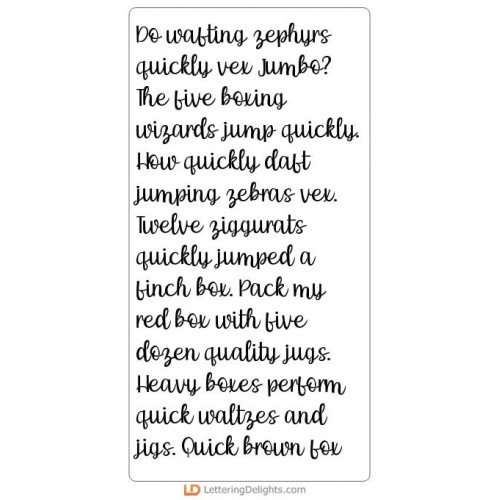 Do wafting zephyrs
quickly vex Jumbo?
The five boxing
wizards jump quickly.
How quickly daft
jumping zebras vex.
Twelve ziggurats
quickly jumped a
finch box. Pack my
red box with five
dozen quality jugs.
Heavy boxes perform
quick waltzes and
jigs. Quick brown fox
LD LetteringDelights.com